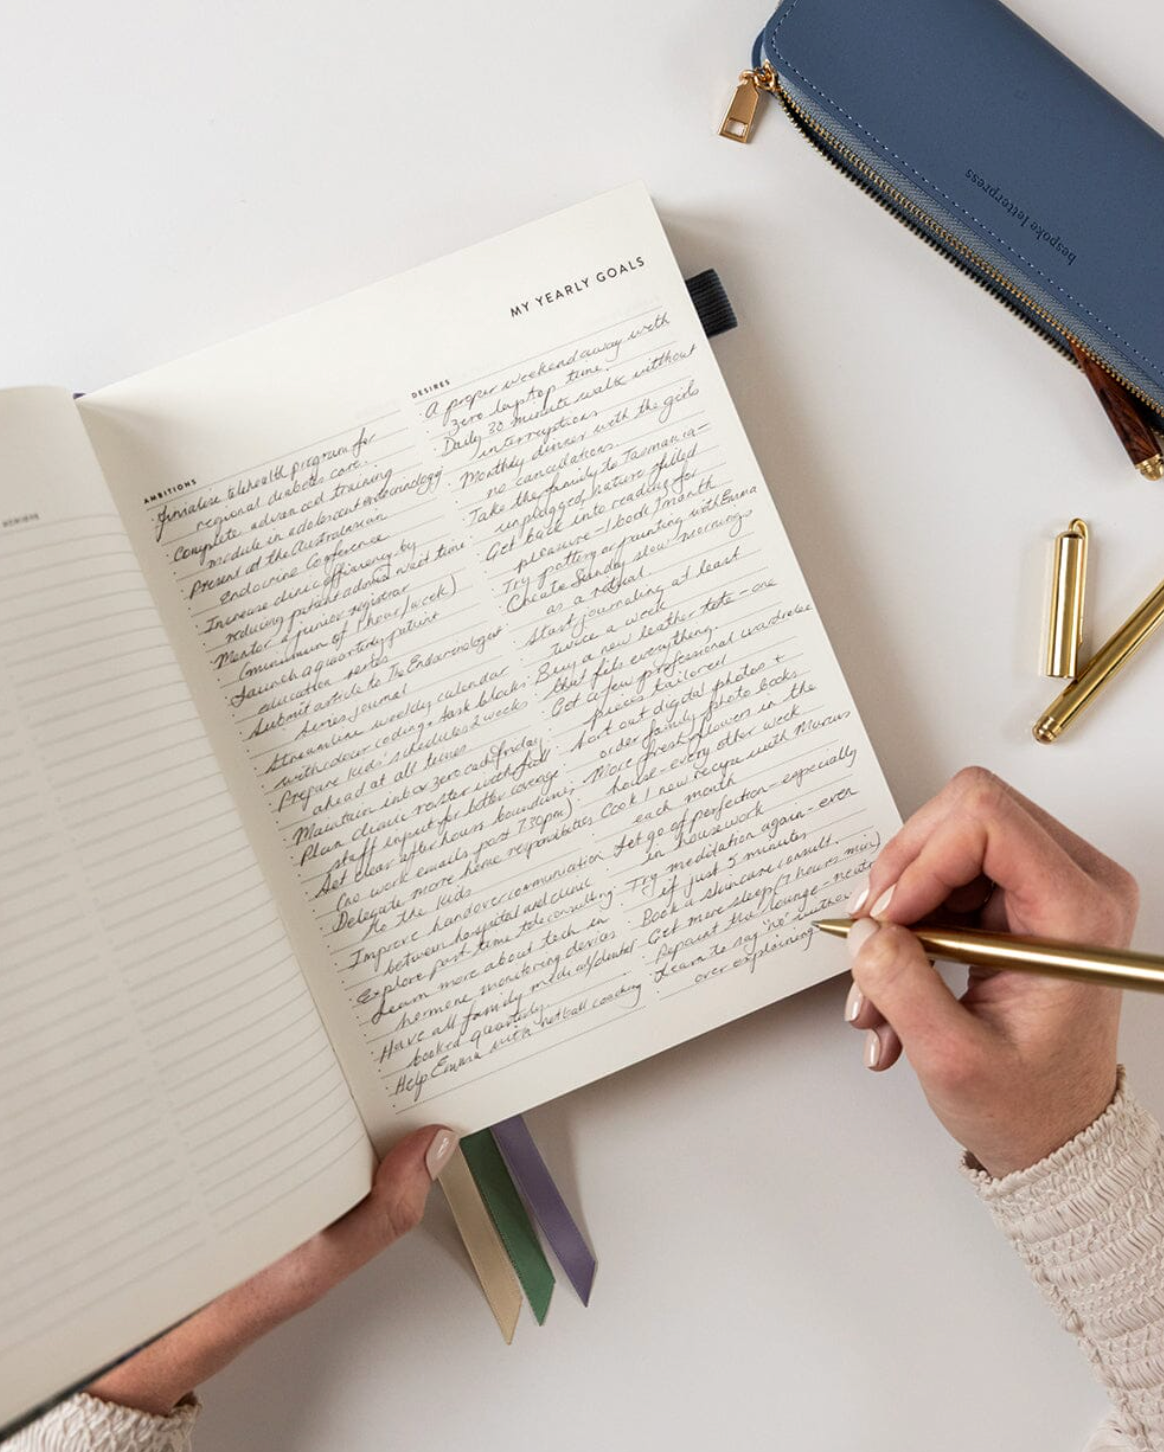 bespoke letterpress
MY YEARLY GOALS
ACHIEVE
AMBITIONS
Finalise telehealth program for
regional diabetes care.
Complete advanced training
module in adolescent endocrinology
Present at the Australasian
Endocrine Conference
Increase clinic efficiency by
reducing patient admin wait time
Mentor a junior registrar
(minimum of 1 hour/week)
Launch a quarterly patient
education series
Submit article to The Endocrinologist
journal
Streamline weekly calendar
with colour coding + task blocks
Prepare kids' schedules 2 weeks
ahead at all times
Maintain inbox zero each Friday
Plan clinic roster with full
staff input for better coverage
Set clear after hours boundaries
(no work emails past 7:30pm)
Delegate more home responsibilities
to the kids
Improve handover communication
between hospital and clinic
Explore part-time teleconsulting
Learn more about tech in
hormone monitoring devices
Have all family medical/dental
booked quarterly.
Help Emma with netball coaching
DESIRES
A proper weekend away with
zero laptop time.
Daily 30 minute walk without
interruptions
Monthly dinner with the girls
no cancellations.
Take the family to Tasmania -
unplugged, nature filled
Get back into reading for
pleasure - 1 book/month
Try pottery or painting with Emma
Create Sunday slow mornings
as a ritual
Start journaling at least
twice a week
Buy a new leather tote - one
that fits everything.
Get a few professional wardrobe
pieces tailored
Sort out digital photos +
order family photo books
More fresh flowers in the
house - every other week
Cook 1 new recipe with Marcus
each month
Let go of perfection - especially
in housework
Try meditation again - even
if just 5 minutes
Book a skincare consult.
Get more sleep (7 hours min)
Repaint the lounge -
Learn to say "no" without
over explaining